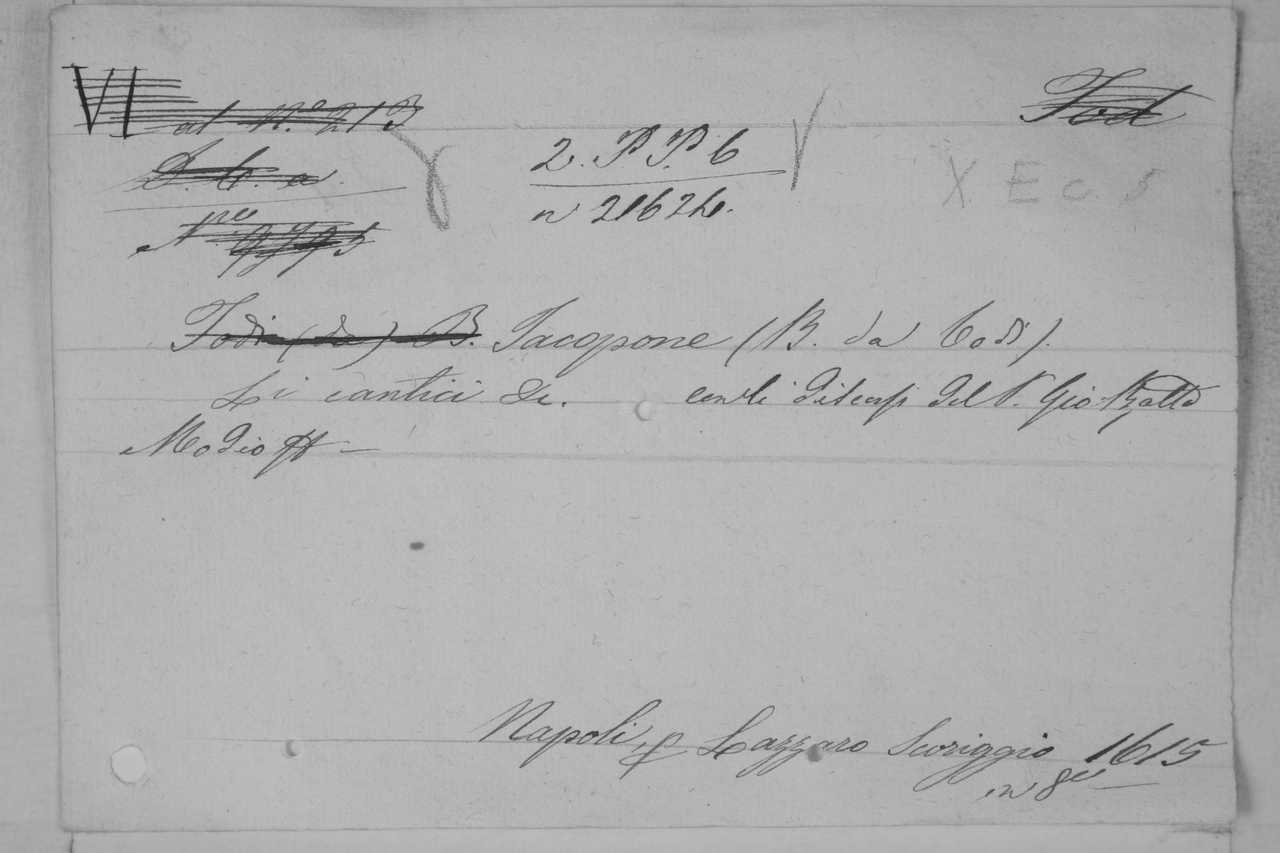 VI
al N.º 213
2. PP. 6
n 21624.
Tod
X. E c. 5
Todi (da) B. Jacopone (B. da Todi).
Li cantici &c. con li discorsi del P. Gio Batta
Modio
Napoli, p Lazzaro Scoriggio 1615
in 8º